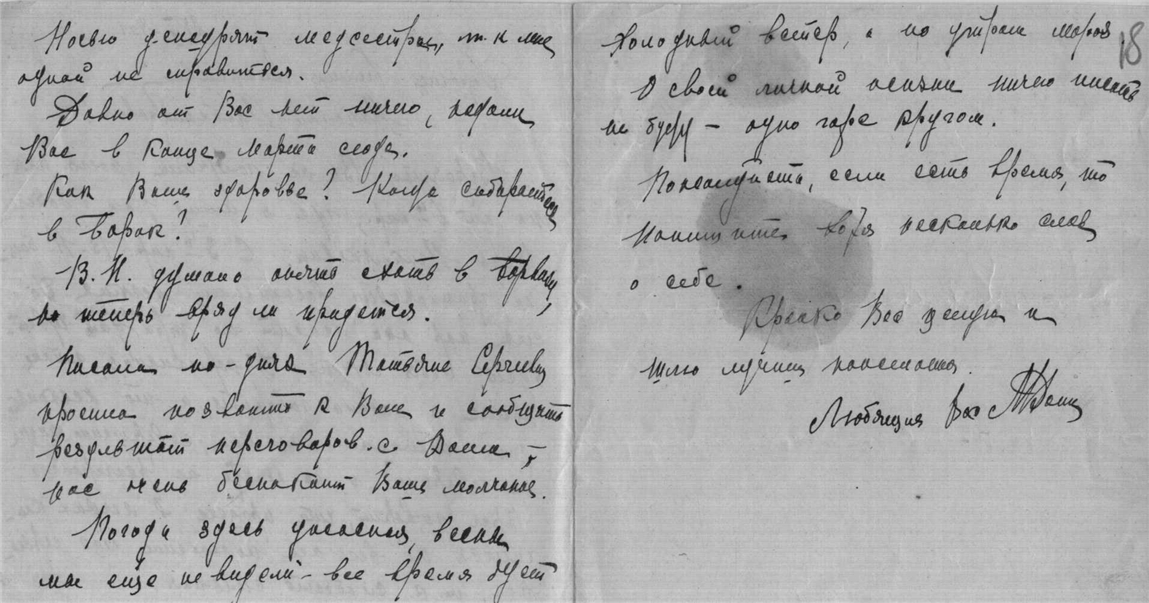 Ночью дежурят медсестры, т-к мне
одной не справиться.
Давно от Вас нет ничего, ждали
Вас в конце марта сюда.
Как Ваше здоровье? Когда собираетесь
в Барок?
В.И. думало опять ехать в
но теперь вряд ли придется.
Писала на-днях Татьяне Сергеевне
просила позвонить к Вам и сообщить
результат переговоров с Вами –
нас очень беспокоит Ваше молчание.
Погода здесь ужасная, весны
мы еще не видели – все время дует
холодный ветер, а по утрам мороз
18
О своей личной жизни ничего писать
не буду – одно горе кругом.
Пожалуйста, если есть время, то
напишите хотя несколько слов
о себе.
Крепко Вас целую и
шлю лучшие пожелания.
Любящая Вас